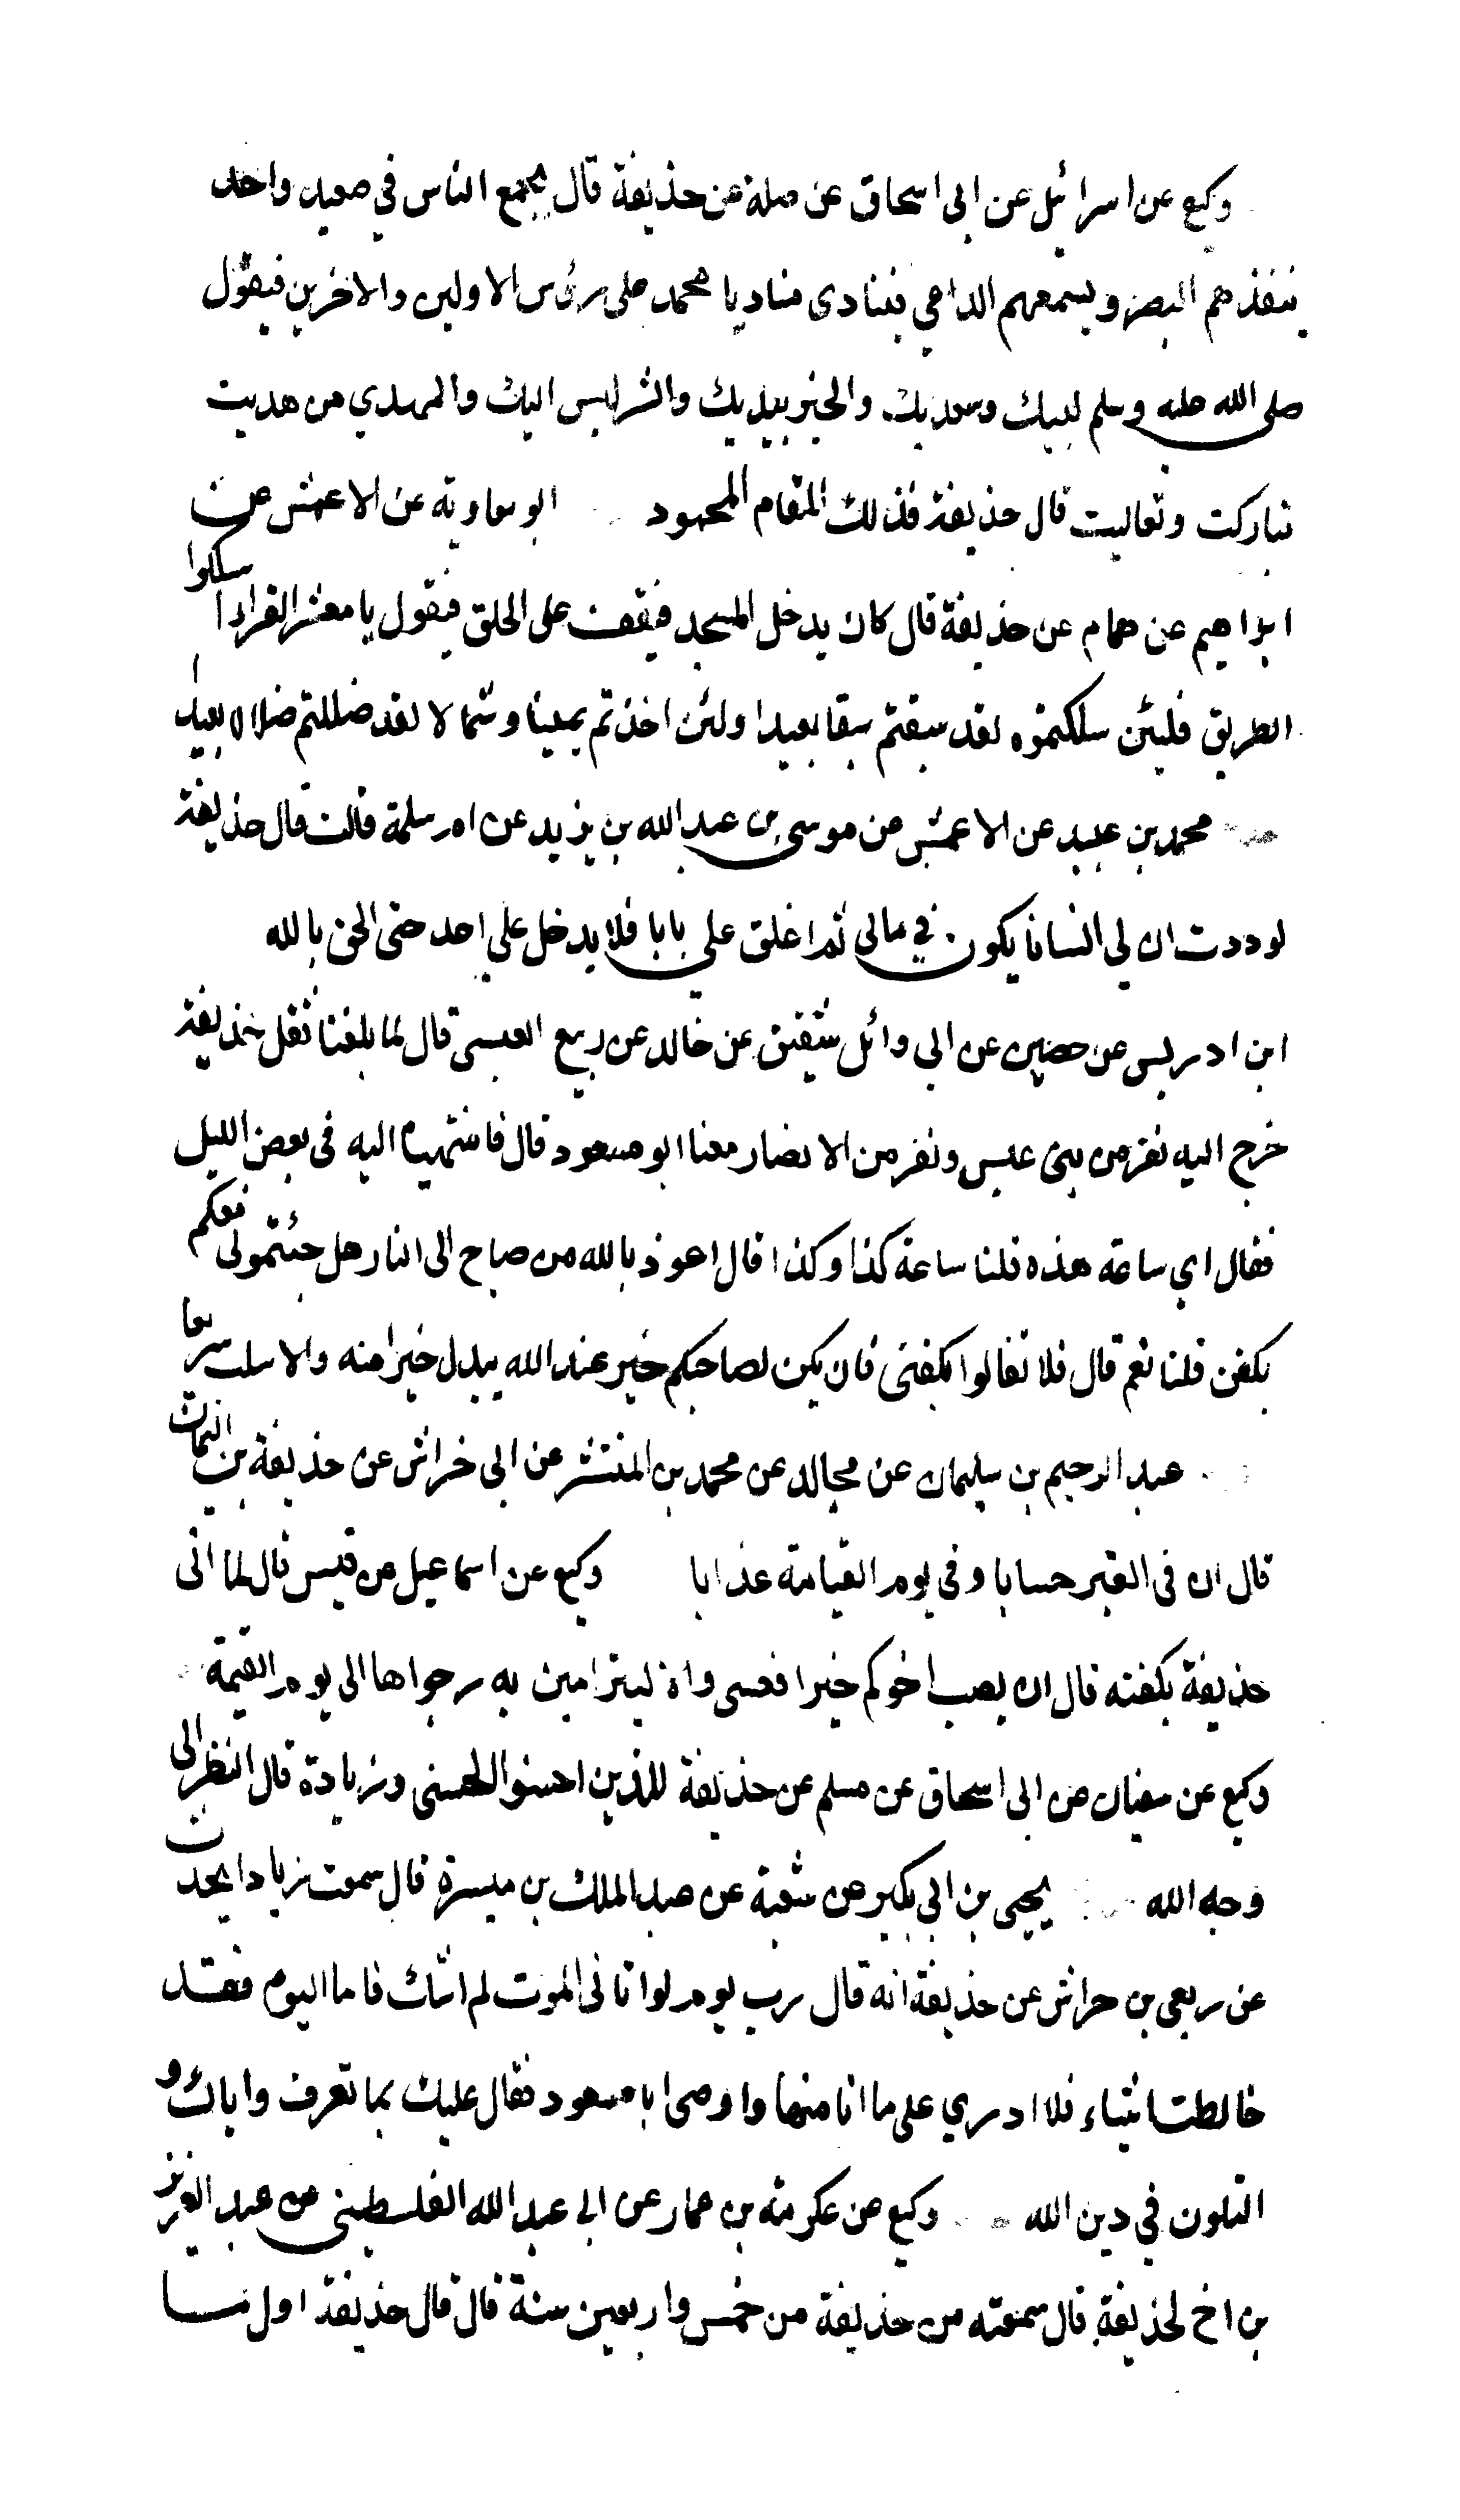 وكيع عن اسرائيل عن ابى اسحاق عن صلة عن حذيفة قال يجمع الناس في صعيد واحد
ينفذهم البصر ويسمعهم الداعي فينادى مناد يا محمد على رؤس الاولين والاخرين فيقول
صلى الله عليه وسلم لبيك وسعديك والخير بيديك والشر ليس اليك والمهدي من هديت
تباركت وتعاليت قال حذيفة فذلك المقام المحمود ابو معاوية عن الاعمش عن
ابراهيم عن همام عن حذيفة قال كان يدخل المسجد فيقف على الحلق فيقول يا معشر القراء اسلكوا
الطريق فلئن سلكتموه لقد سبقتم سبقا بعيدا ولئن اخذتم يمينا وشمالا لقد ضللتم ضلالا بعيدا
محمد بن عبيد عن الاعمش عن موسى بن عبد الله بن يزيد عن ام سلمة قالت قال حذيفة
لوددت ان لي انسانا يكون في مالى ثم اغلق علي بابا فلا يدخل علي احد حتى الحق بالله
ابن ادريس عن حصين عن ابي وائل شقيق عن خالد عن ربيع العبسى قال لما بلغنا ثقل حذيفة
خرج اليه نفر من بنى عبس ونفر من الانصار معنا ابو مسعود قال فانتهينا اليه فى بعض الليل
فقال اي ساعة هذه قلنا ساعة كذا وكذا قال اعوذ بالله من صباح الى النار هل جئتمونى معكم
بكفن قلنا نعم قال فلا تغالوا بكفنى فان يكن لصاحبكم خير عند الله يبدل خيرا منه والا سلب سريعا
عبد الرحيم بن سليمان عن مجالد عن محمد بن المنتشر عن ابى خراش عن حذيفة بن اليمان
قال ان فى القبر حسابا وفى يوم القيامة عذابا وكيع عن اسماعيل عن قيس قال لما اتى
حذيفة بكفنه قال ان يصب اخوكم خيرا فعسى والا ليترامين به رجواها الى يوم القيمة
وكيع عن سفيان عن ابى اسحاق عن مسلم عن حذيفة للذين احسنوا الحسنى وزيادة قال النظر الى
وجه الله يحيى بن ابي بكير عن شعبة عن عبد الملك بن ميسرة قال سمعت زيادا يحدث
عن ربعى بن حراش عن حذيفة انه قال رب يوم لو اتانى الموت لم اشك فاما اليوم فقد
خالطت اشياء فلا ادري على ما انا منها واوصى ابا مسعود فقال عليك بما تعرف واياك و
التلون في دين الله وكيع عن عكرمة بن عمار عن ابى عبد الله الفلسطينى عن عبد العزيز
بن اخ لحذيفة قال سمعته من حذيفة من خمس واربعين سنة قال قال حذيفة اول ما